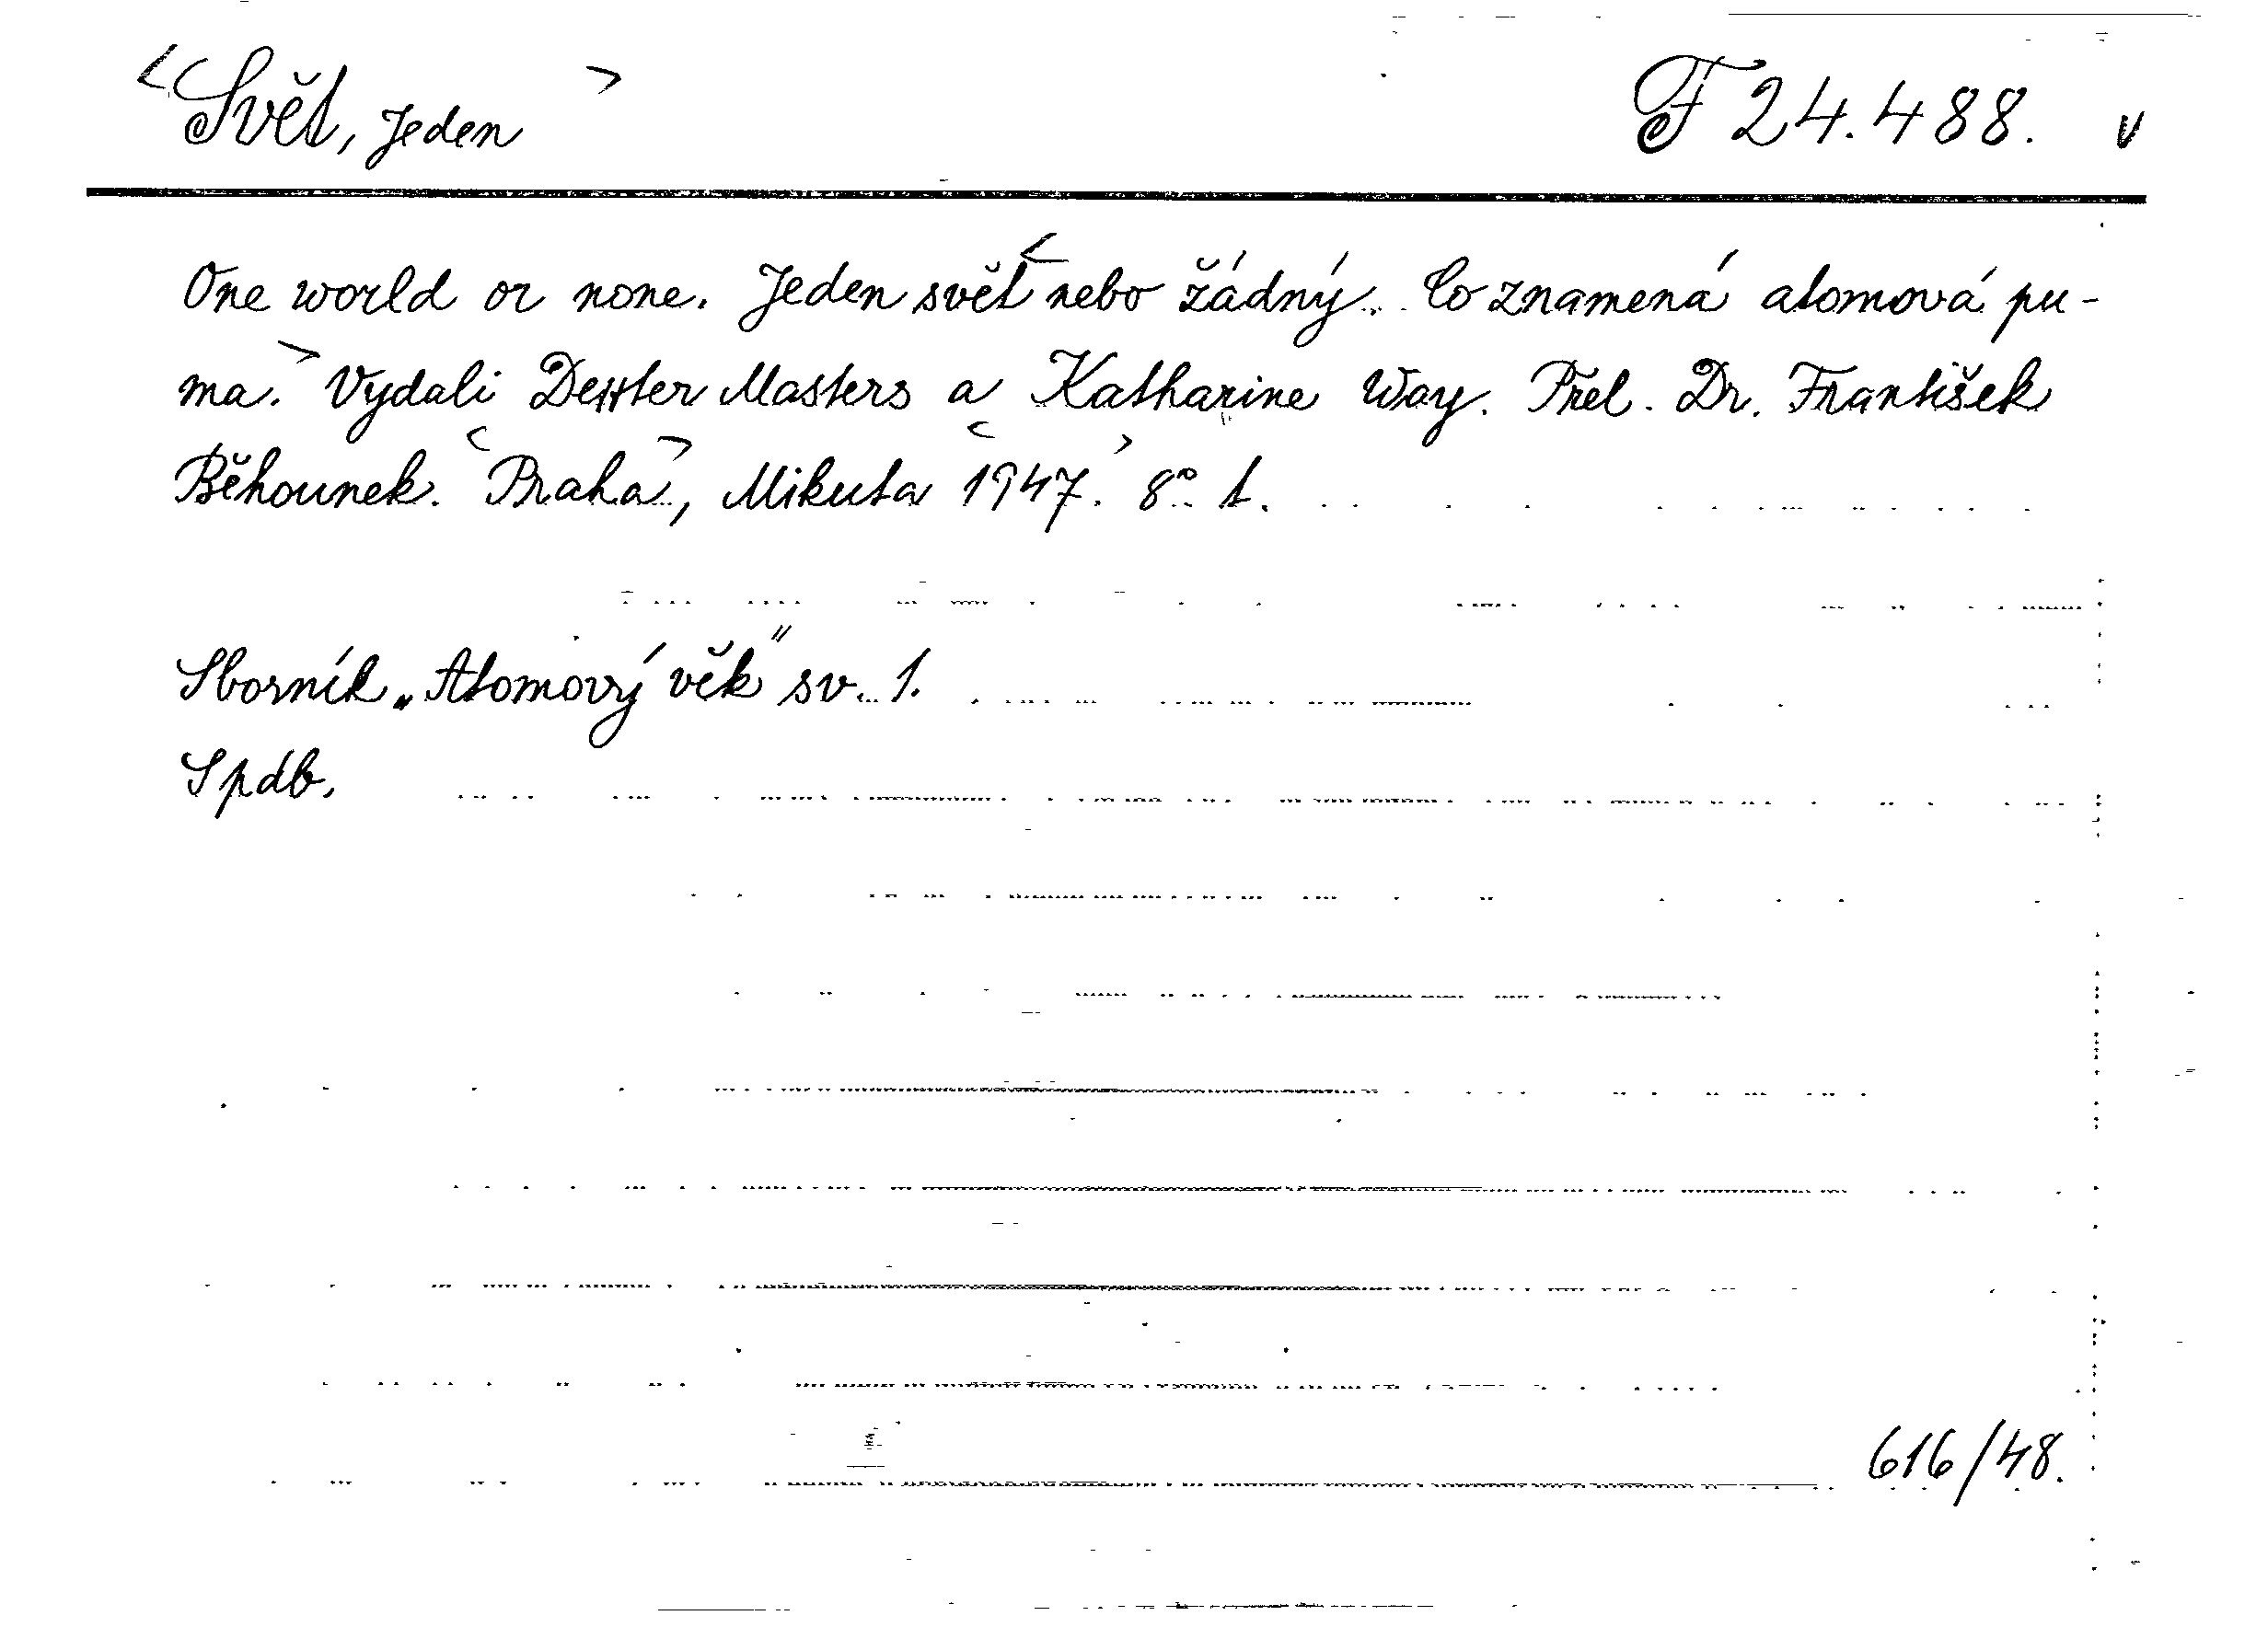 <Svět, Jeden > F 24.488. v
One world or none. Jeden svět < nebo žádný. Co znamená atomová pu-
ma. > Vydali Dexter Masters a Katharine Way. Přel. Dr. František
Běhounek. <Praha>, Mikuta <1947.> 8° t.
Sborník „Atomový věk" sv. 1.
Spdb.
616/48.